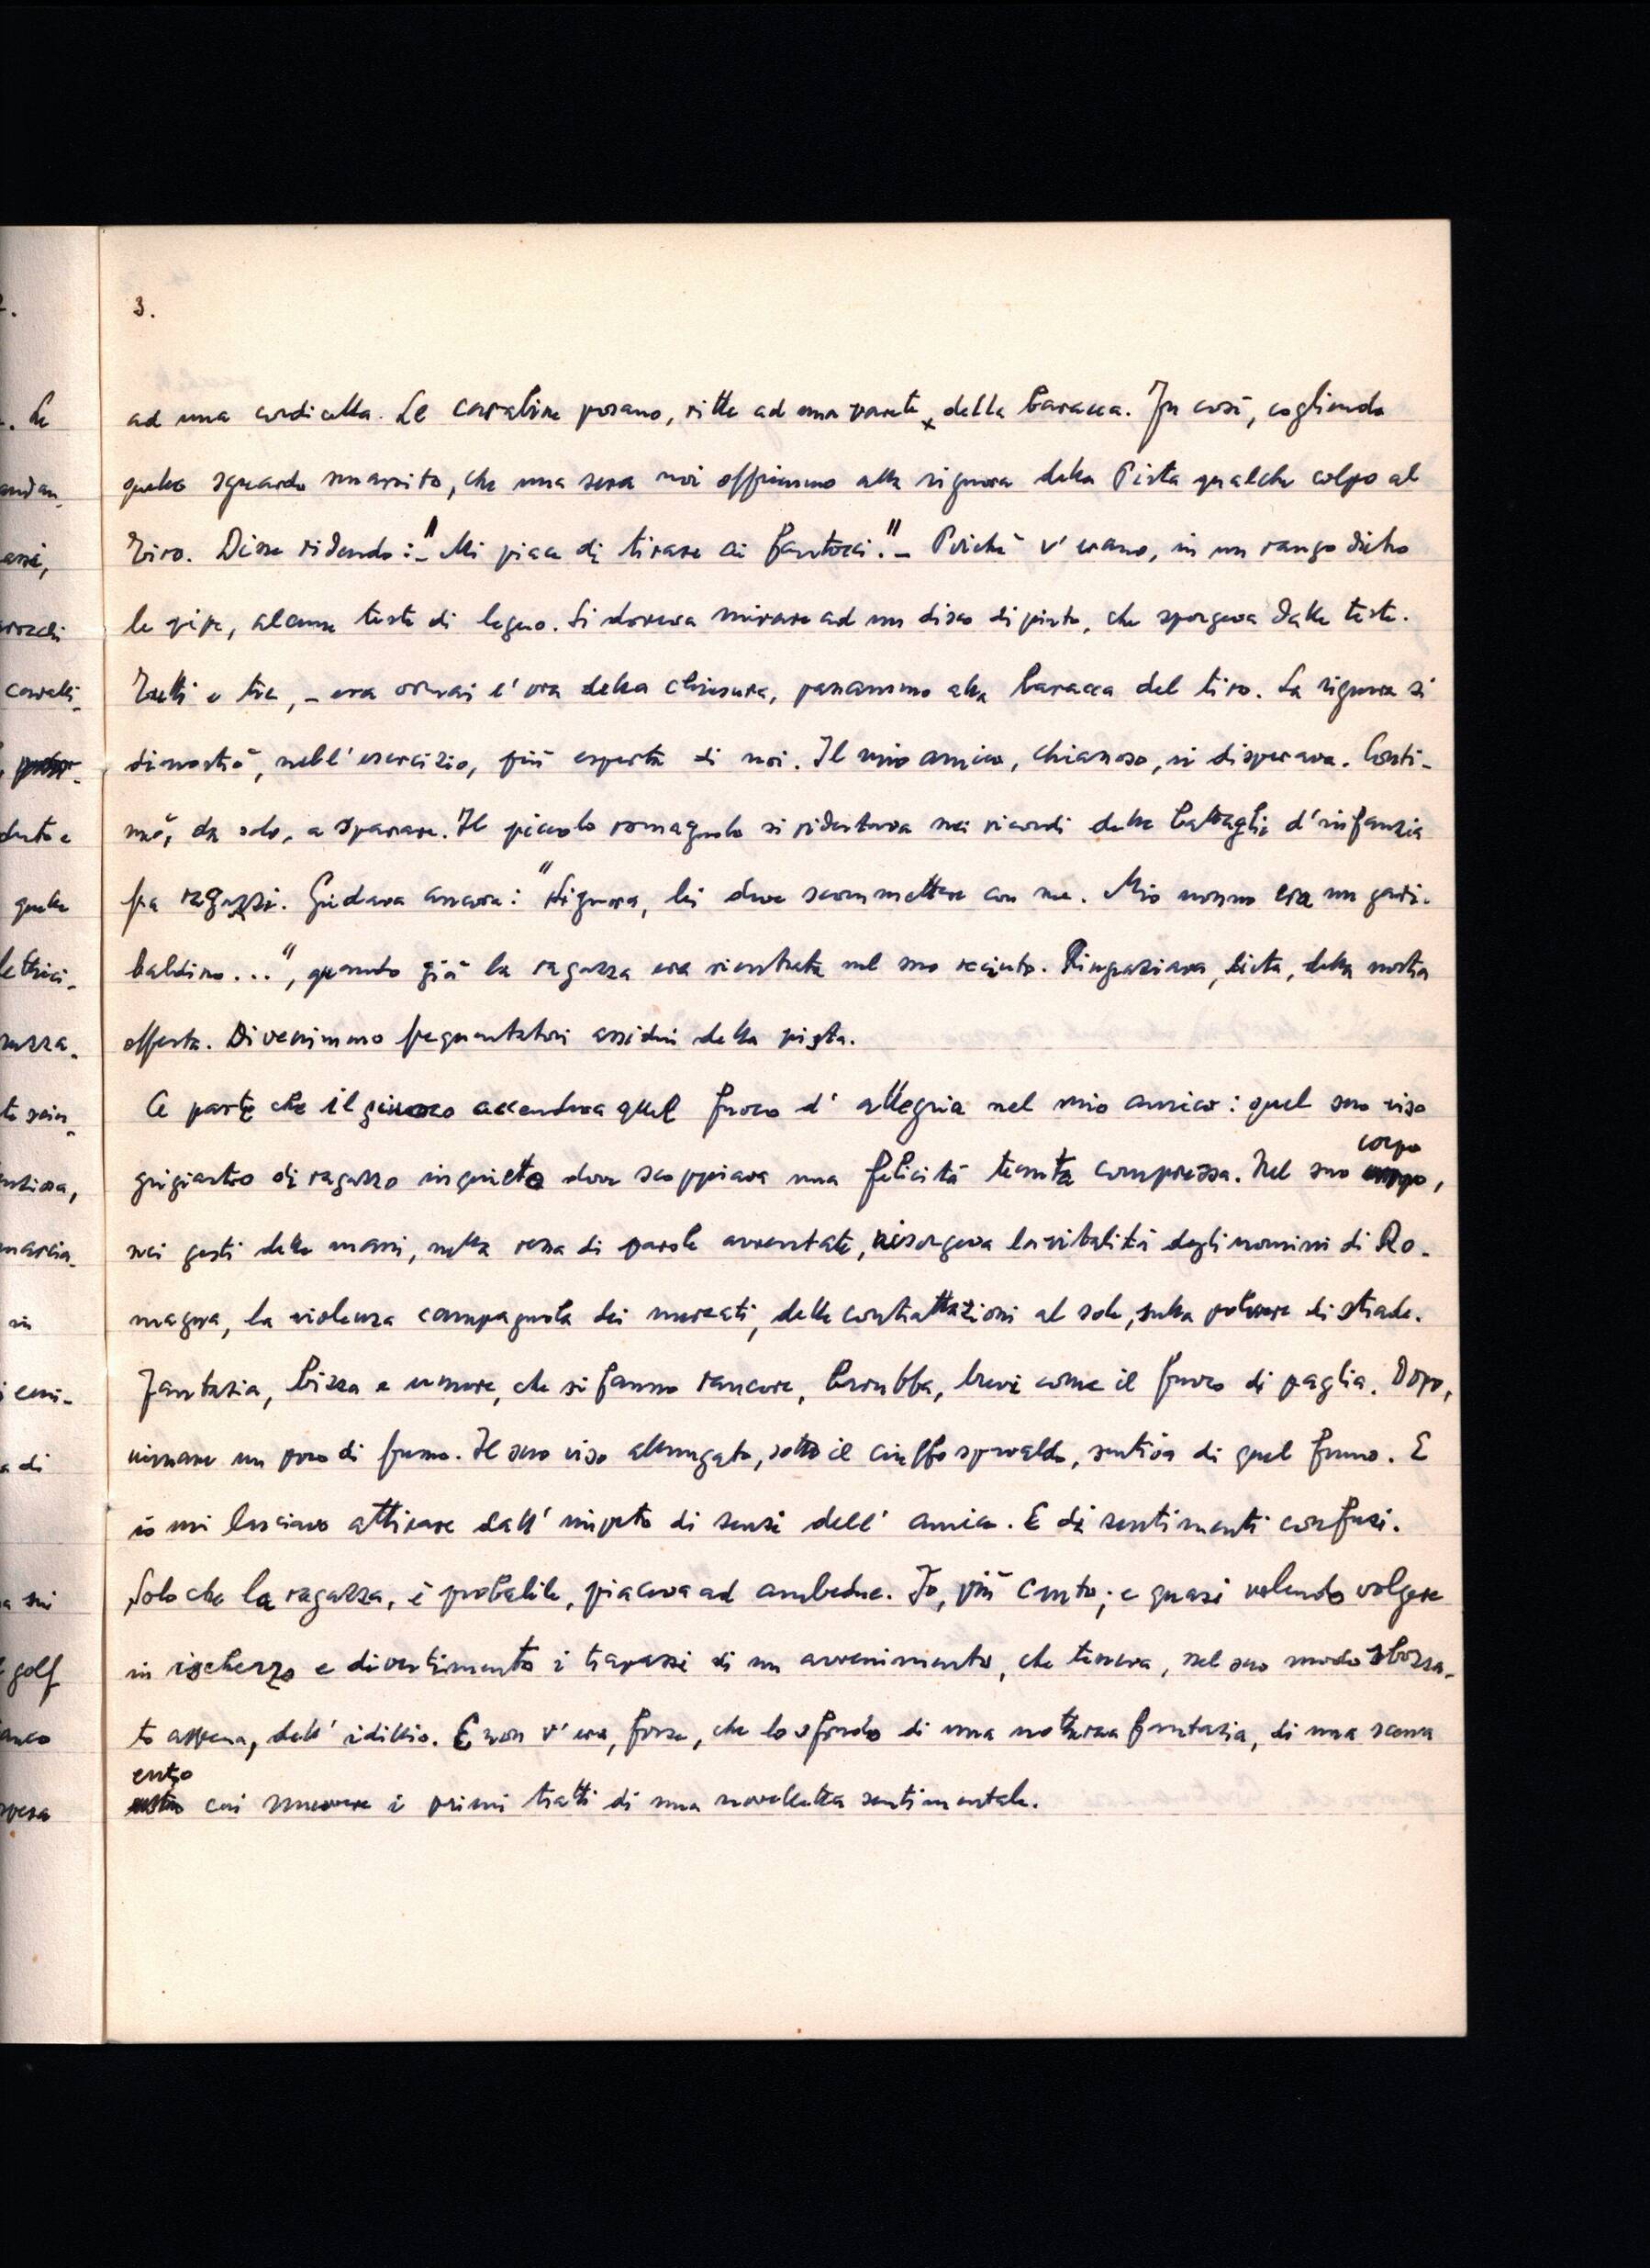 3.
ad una cordicella. Le carabine posano, ritte ad una parete x della baracca. Fu così, cogliendo
quello sguardo smarrito, che una sera noi offrimmo alla signora della Pista qualche colpo al
Tiro. Disse ridendo: - "Mi piace di tirare ai fantocci." - Poiché v'erano, in un rango dietro
le pipe, alcune teste di legno. Si doveva mirare ad un disco dipinto, che sporgeva dalle teste.
Tutti e tre, - era ormai l'ora della chiusura, passammo alla baracca del tiro. La signora si
dimostrò, nell'esercizio, più esperta di noi. Il mio amico, chiassoso, si disperava. Conti-
nuò, da solo, a sparare. Il piccolo romagnolo si ridestava nei ricordi delle battaglie d'infanzia
fra ragazzi. Gridava ancora: "Signora, lei deve scommettere con me. Mio nonno era un gari-
baldino...", quando già la ragazza era rientrata nel suo recinto. Ringraziava, lieta, della nostra
offerta. Divenimmo frequentatori assidui della pista.
A parte che il giuoco accendeva quel fuoco d'allegria nel mio amico: quel suo viso
grigiastro di ragazzo inquieto dove scoppiava una felicità tenuta compressa. Nel suo corpo,
nei gesti delle mani, nella ressa di parole avventate, risorgeva la vitalità degli uomini di Ro-
magna, la violenza campagnola dei mercati, delle contrattazioni al sole, sulla polvere di strade.
Fantasia, bizza e umore, che si fanno rancore, baruffa, brevi come il fuoco di paglia. Dopo,
rimane un poco di fumo. Il suo viso allungato, sotto il ciuffo spavaldo, sentiva di quel fumo. E
io mi lasciavo attirare dall'impeto di sensi dell'amico. E di sentimenti confusi.
Solo che la ragazza, è probabile, piaceva ad ambedue. Io, più cauto; e quasi volendo volgere
in ischerzo e divertimento i trapassi di un avvenimento, che teneva, nel suo modo sbozza-
to appena, dell'idillio. E non v'era, forse, che lo sfondo di una notturna fantasia, di una scena
entro cui muovere i primi tratti di una novelletta sentimentale.